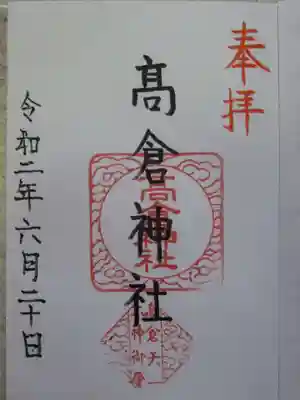 奉拝
髙倉神社
髙倉神社
令和二年六月二十日